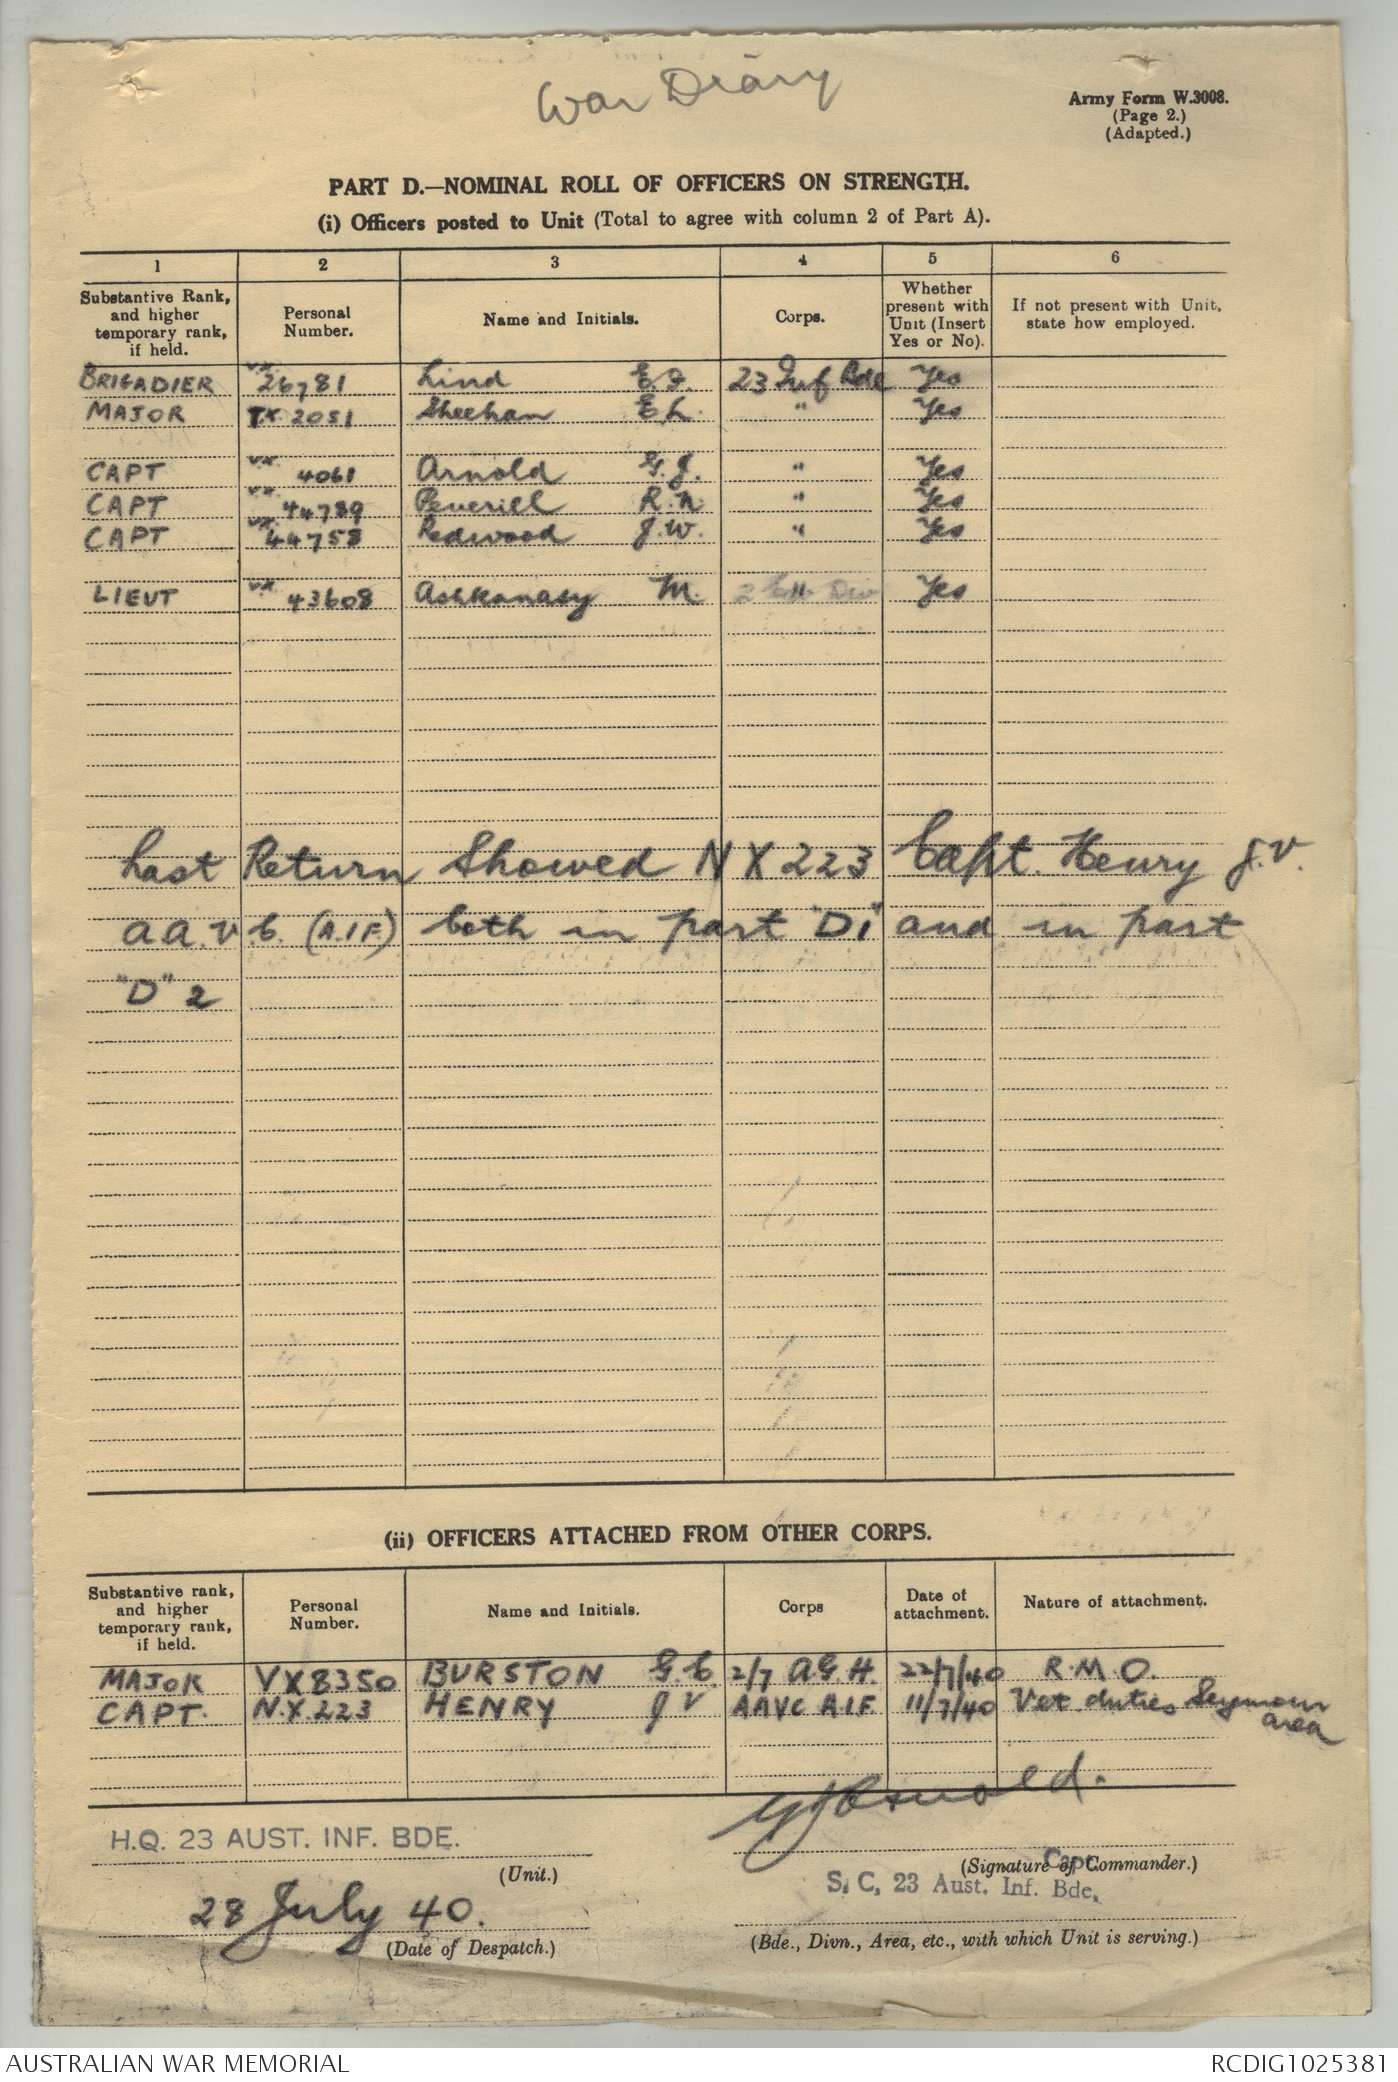 War Diary
Army Form W.3008.
(Page 2.)
(Adapted.)
PART D.—NOMINAL ROLL OF OFFICERS ON STRENGTH.
(i) Officers posted to Unit (Total to agree with column 2 of Part A).
1 2 3 4 5 6
Substantive Rank, and higher temporary rank, if held. Personal Number. Name and Initials. Corps. Whether present with Unit (Insert Yes or No). If not present with Unit, state how employed.
BRIGADIER VX 26781 Lind E.F. 23 Inf Bde Yes
MAJOR TX 2051 Sheehan E L. " Yes
CAPT VX 4061 Arnold G.J. " Yes
CAPT VX 44789 Peverill R.N " Yes
CAPT VX 44758 Redwood J.W. " Yes
LIEUT VX 43608 Ashkanasy M. " Yes
Last Return Showed NX223 Capt. Henry J.V.
A.A.V.C. (A.I.F.) both in part "D1" and in part
"D" 2
(ii) OFFICERS ATTACHED FROM OTHER CORPS.
Substantive rank, and higher temporary rank, if held. Personal Number. Name and Initials. Corps Date of attachment. Nature of attachment.
MAJOR VX8350 BURSTON G.C. 2/7 A.G.H. 22/7/40 R.M.O.
CAPT. N.X.223 HENRY J V AAVC A.I.F. 11/7/40 Vet. duties Seymour area
GJArnold.
H.Q. 23 AUST. INF. BDE.
(Unit.)
Capt
(Signature of Commander.)
S. C, 23 Aust. Inf. Bde.
28 July 40.
(Date of Despatch.)
(Bde., Divn., Area, etc., with which Unit is serving.)
AUSTRALIAN WAR MEMORIAL
RCDIG1025381